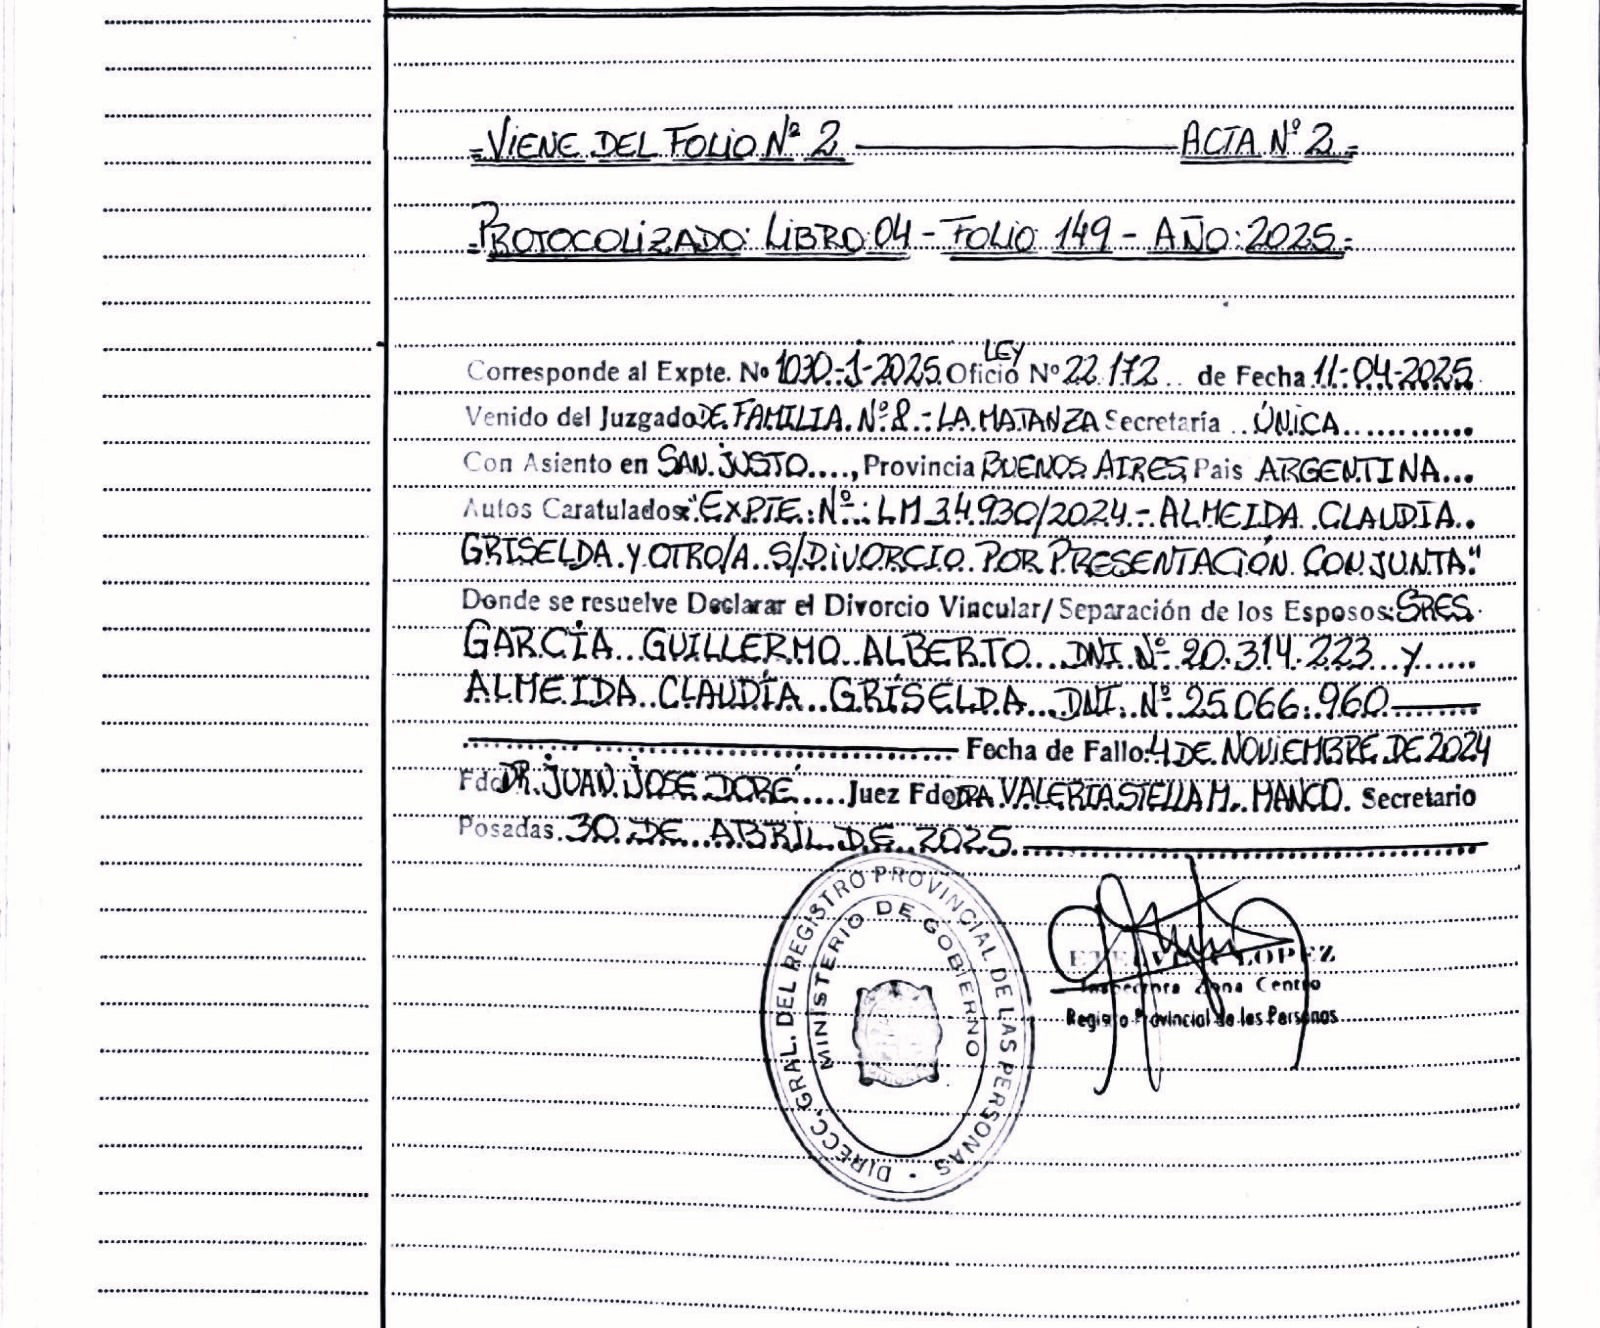 =VIENE DEL FOLIO Nº 2 ACTA Nº 2=
=PROTOCOLIZADO: LIBRO: 04 - FOLIO 149 - AÑO: 2025=
LEY
Corresponde al Expte. Nº 1030-J-2025 Oficio Nº 22.172 de Fecha 11-04-2025
Venido del Juzgado DE FAMILIA Nº 8 - LA MATANZA Secretaría ÚNICA
Con Asiento en SAN JUSTO, Provincia BUENOS AIRES Pais ARGENTINA
Autos Caratulados: "EXPTE. Nº: LM 34.930/2024 - ALMEIDA CLAUDIA
GRISELDA Y OTRO/A S/DIVORCIO POR PRESENTACIÓN CONJUNTA"
Donde se resuelve Declarar el Divorcio Vincular/Separación de los Esposos: SRES.
GARCÍA GUILLERMO ALBERTO DNI Nº 20.314.223 Y
ALMEIDA CLAUDIA GRISELDA DNI Nº 25.066.960
Fecha de Fallo: 4 DE NOVIEMBRE DE 2024
Fdo DR. JUAN JOSE DORÉ Juez Fdo DRA VALERIA STELLA M. MANCO. Secretario
Posadas. 30 DE ABRIL DE 2025
DIRECC. GRAL. DEL REGISTRO PROVINCIAL DE LAS PERSONAS
MINISTERIO DE GOBIERNO
LOPEZ
Inspectora Zona Centro
Registro Provincial de las Personas